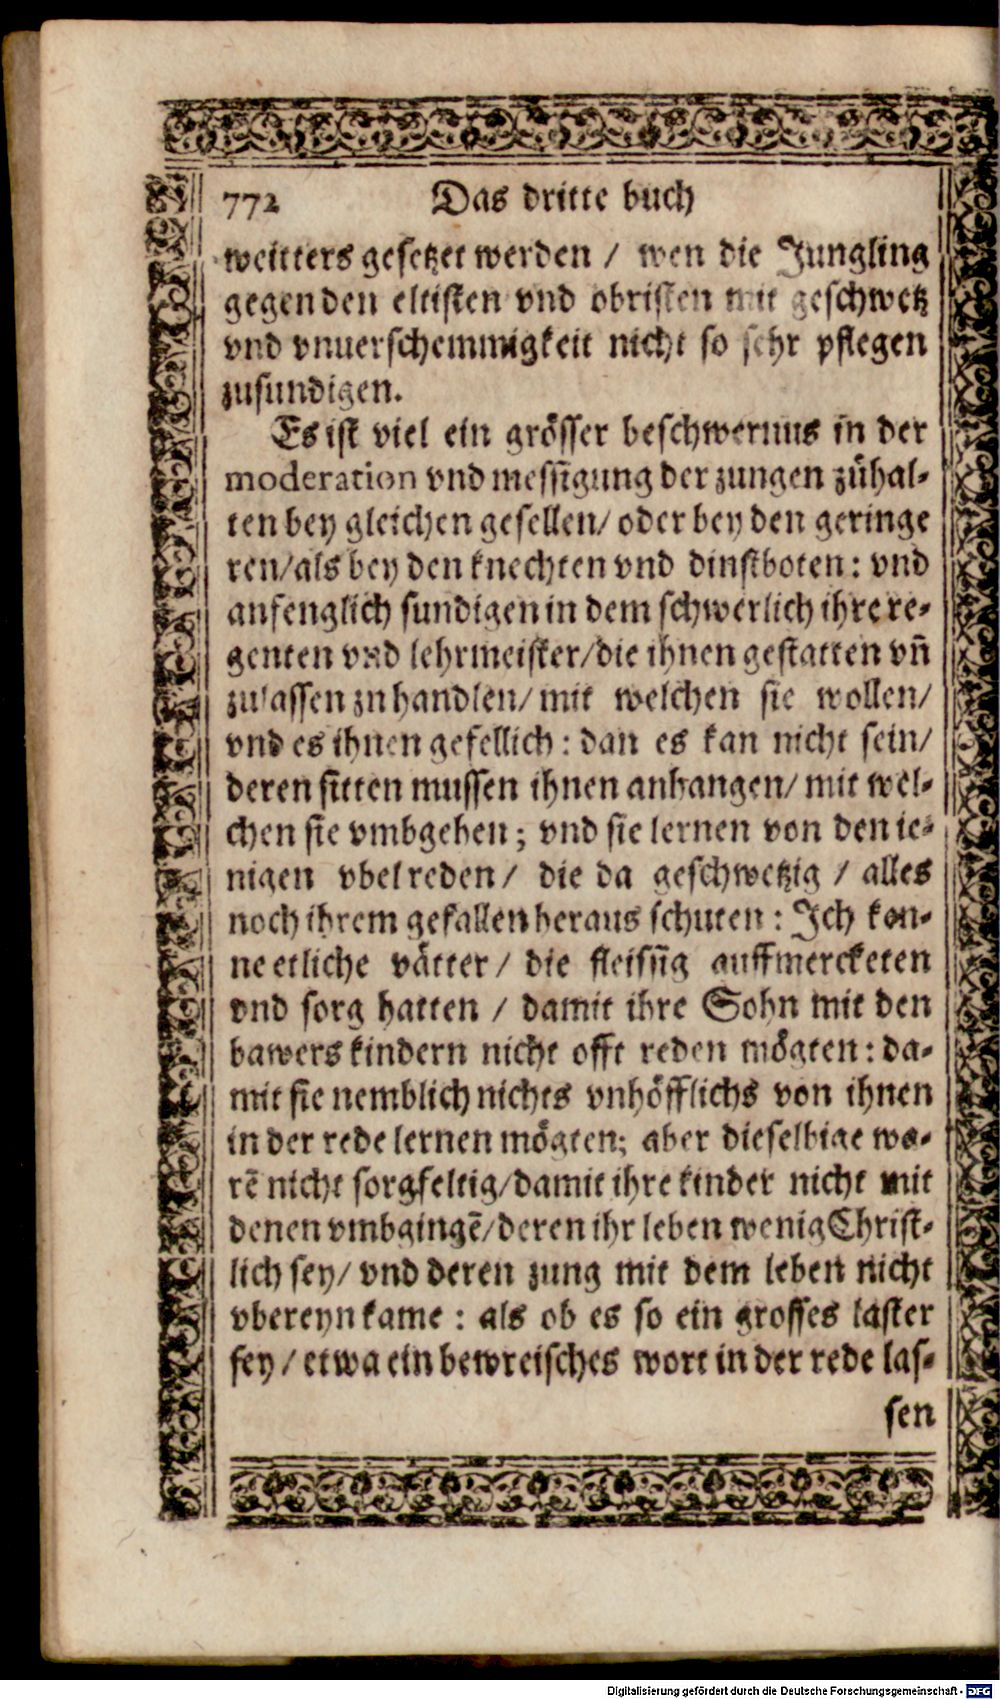 772 Das dritte buch
weitters gesetzet werden / wen die Jungling
gegen den eltisten vnd obristen mit geschwetz
vnd vnuerschemmigkeit nicht so sehr pflegen
zusundigen.
Es ist viel ein grösser beschwernus in der
moderation vnd messigung der zungen zůhal-
ten bey gleichen gesellen/ oder bey den geringe
ren/als bey den knechten vnd dinstboten: vnd
anfenglich sundigen in dem schwerlich ihre re-
genten vnd lehrmeister/die ihnen gestatten vñ
zulassen zu handlen/ mit welchen sie wollen/
vnd es ihnen gefellich: dan es kan nicht sein/
deren sitten mussen ihnen anhangen/ mit wel-
chen sie vmbgehen; vnd sie lernen von den ie-
nigen vbel reden/ die da geschwetzig / alles
noch ihrem gefallen heraus schuten: Ich kon-
ne etliche vätter/ die fleissig auffmercketen
vnd sorg hatten / damit ihre Sohn mit den
bawers kindern nicht offt reden mögten: da-
mit sie nemblich nichts vnhöfflichs von ihnen
in der rede lernen mögten; aber dieselbige wa-
rē nicht sorgfeltig/damit ihre kinder nicht mit
denen vmbgingē/deren ihr leben wenig Christ-
lich sey/ vnd deren zung mit dem leben nicht
vbereyn kame : als ob es so ein grosses laster
sey/ etwa ein bewreisches wort in der rede las-
sen
Digitalisierung gefördert durch die Deutsche Forschungsgemeinschaft - DFG